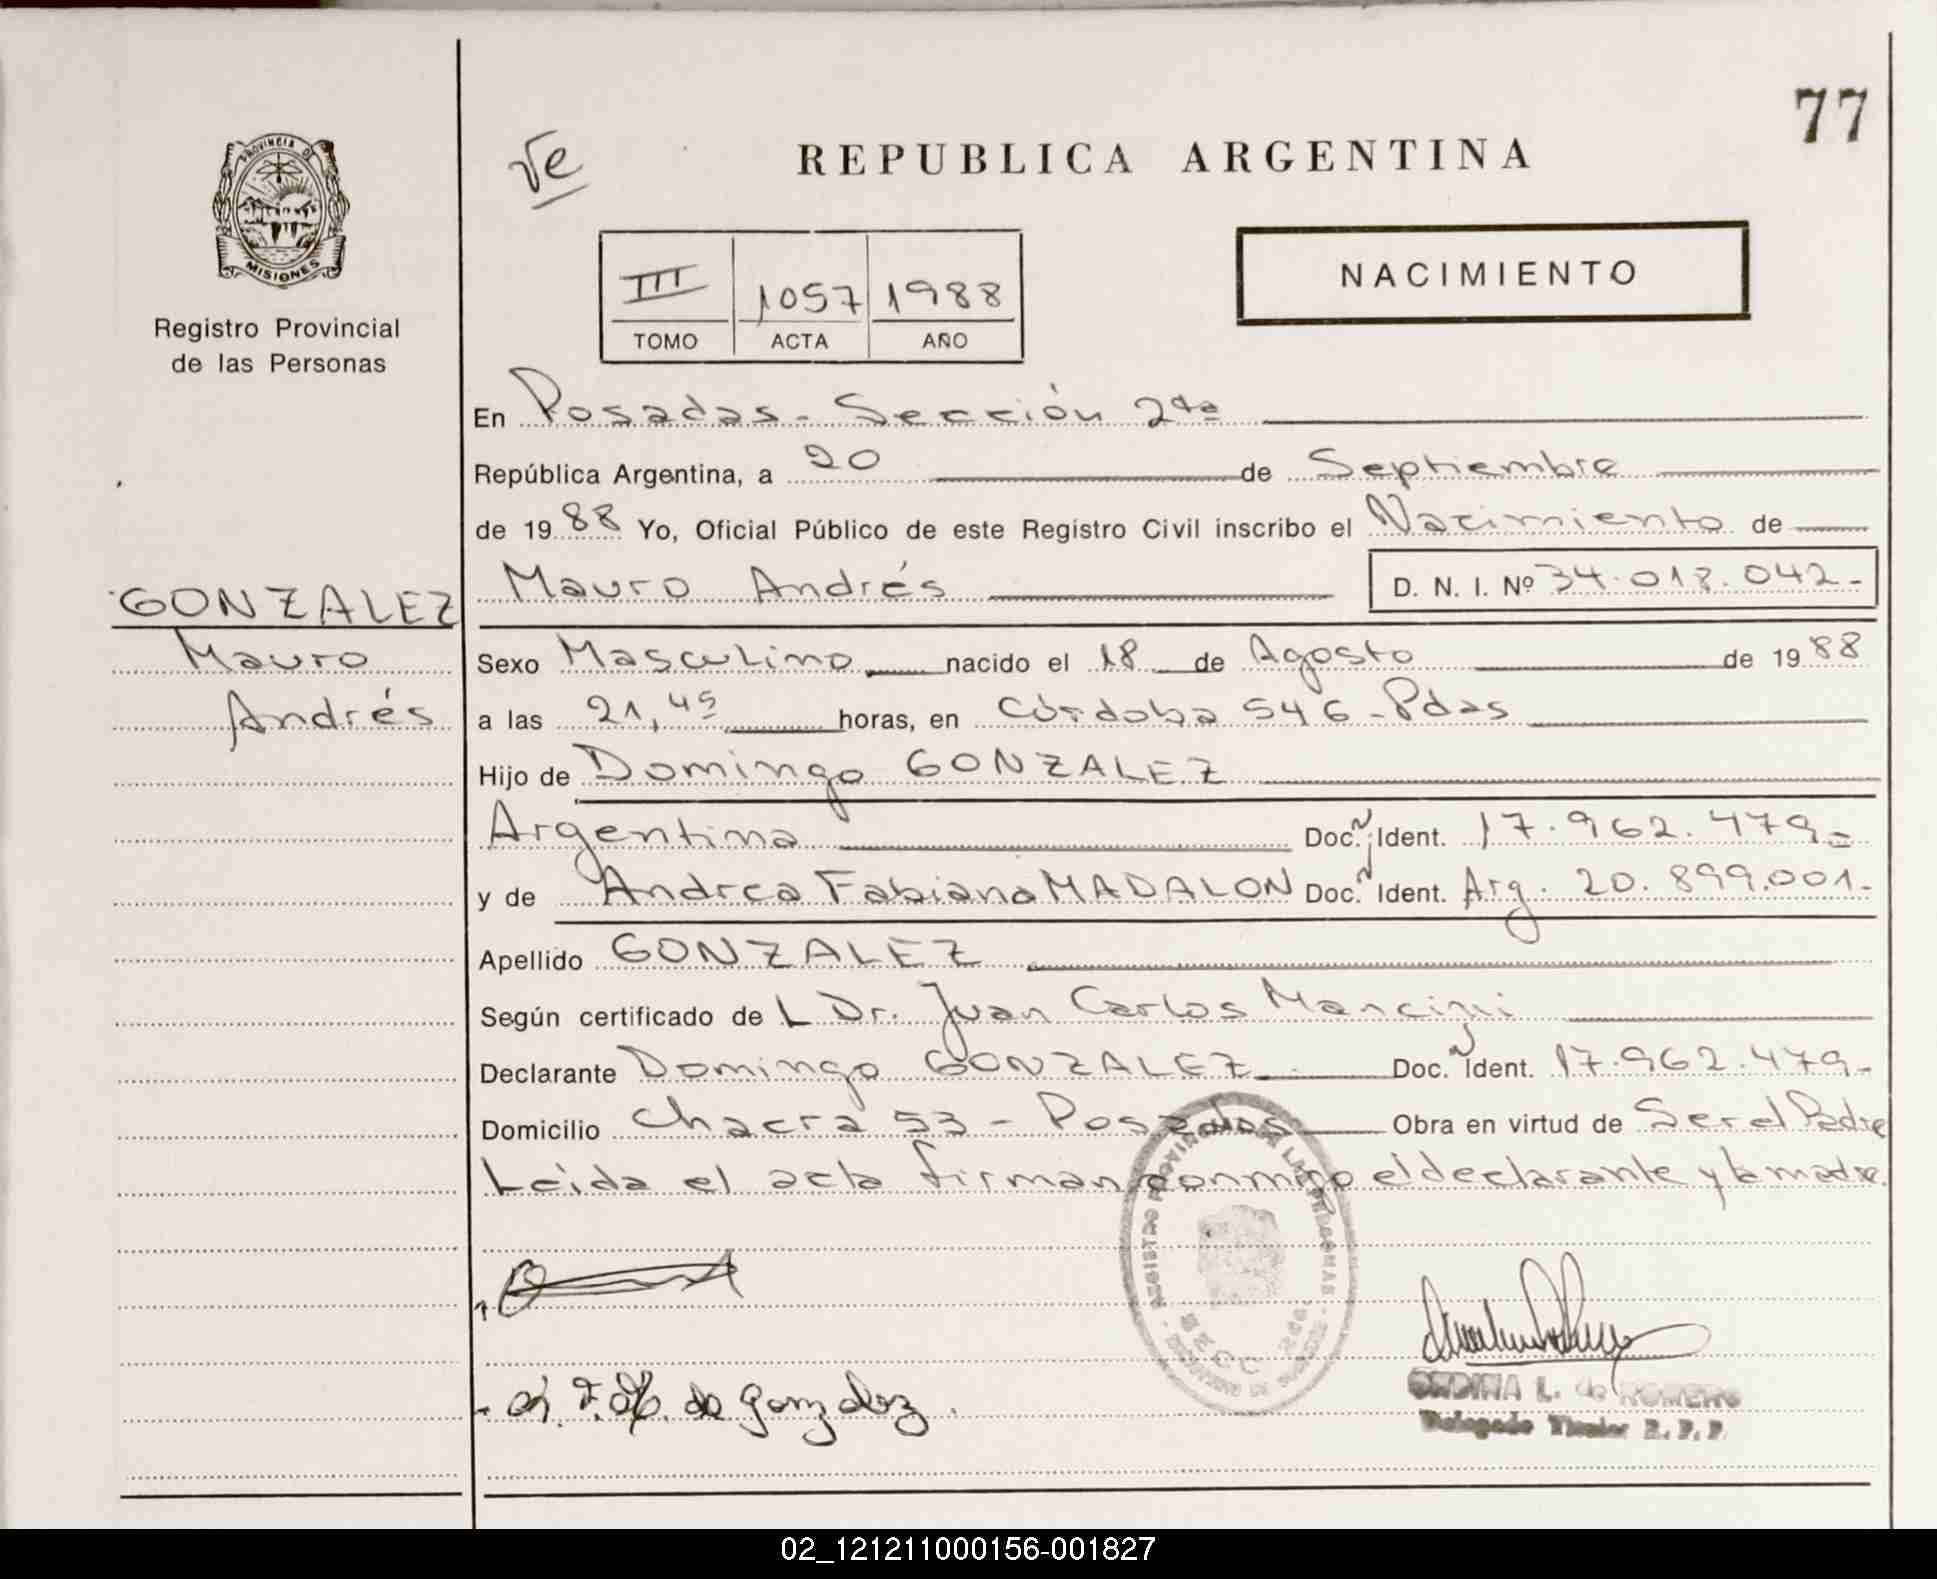 77
PROVINCIA DE
MISIONES
Registro Provincial
de las Personas
REPUBLICA ARGENTINA
NACIMIENTO
III 1057 1988
TOMO ACTA AÑO
En Posadas - Sección 2da
República Argentina, a 20 de Septiembre
de 1988 Yo, Oficial Público de este Registro Civil inscribo el Nacimiento de
GONZALEZ
Mauro
Andrés
Mauro Andrés D. N. I. Nº 34.018.042-
Sexo Masculino nacido el 18 de Agosto de 1988
a las 21,45 horas, en Córdoba 546 - Pdas
Hijo de Domingo GONZALEZ
Argentina Doc. Ident. 17.962.479-
y de Andrea Fabiana MADALON Doc. Ident. Arg. 20.899.001-
Apellido GONZALEZ
Según certificado de L Dr. Juan Carlos
Declarante Domingo GONZALEZ Doc. Ident. 17.962.479-
Domicilio Chacra 53 - Posadas Obra en virtud de Ser el Padre
Leida el acta firman conmigo el declarante y la madre.
de Gonzalez
ONDINA L. de ROMERO
Delegado Titular R. P. P.
02_121211000156-001827